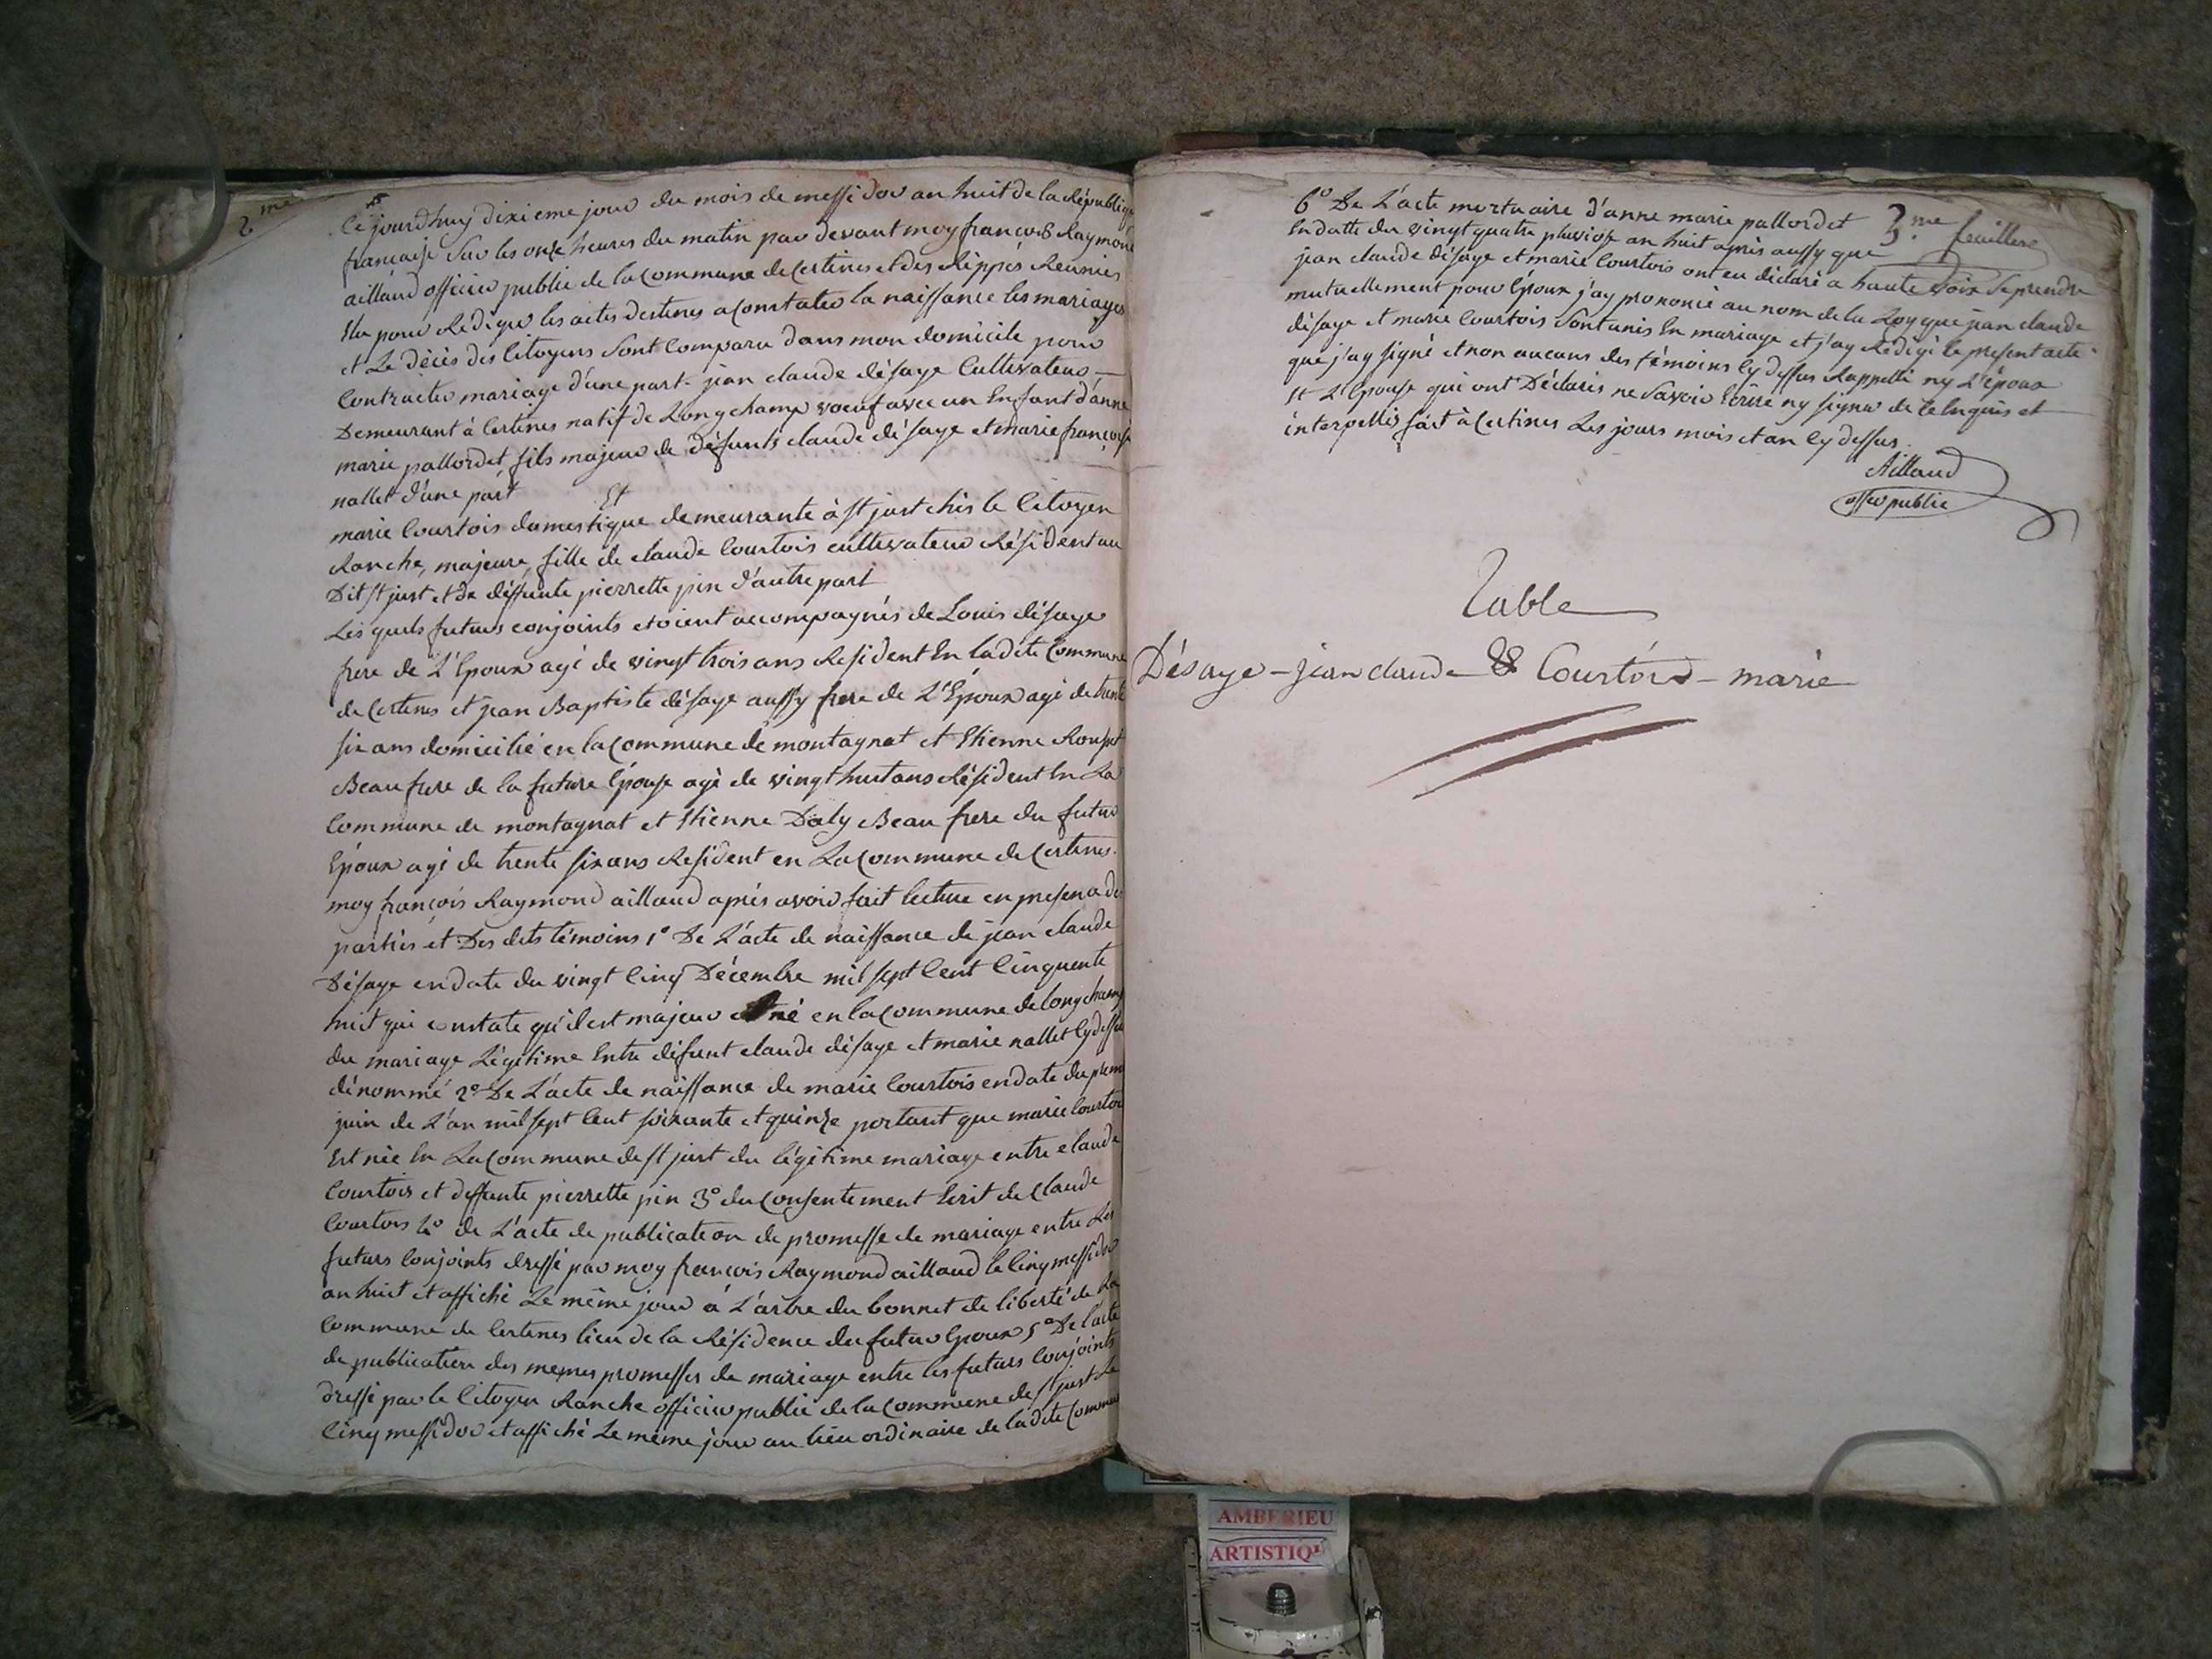 2me
Ce jourdhuy dixieme jour du mois de messidor an huit de la République
francaise sur les onze heures du matin par devant moy francois Raymond
aillaud officier public de la commune de Certines et des Rippes Reunies
Elu pour Rediger les actes destines a constater la naissance les mariages
et Le décès des Citoyens sont comparu dans mon domicile pour
Contracter mariage d'une part jean claude désage Cultivateur
Demeurant à Certines natif de Longchamp voeuf avec un Enfant d'anne
marie pallordet, fils majeur de défunts claude désage et marie françoise
nallet d'une part
Et
marie Courtois domestique demeurante à st just chés le Citoyen
Ranche, majeure, fille de claude Courtois cultivateur Résident au
Dit st just et de deffunte pierrette pin d'autre part
Les quels futurs conjoints etoient accompagnés de Louis désage
frere de L'Epoux agé de vingt trois ans Resident En ladite Commune
de Certines et jean Baptiste désage aussy frere de L'Epoux agé de trente
six ans domicilié en la Commune de montagnat et Etienne
Beau frere de la future Epouse agé de vingt huit ans Résident En La
Commune de montagnat et Etienne Daly Beau frere du futur
Epoux agé de trente six ans Resident en La Commune de Certines.
moy françois Raymond aillaud aprés avoir fait lecture en presence des
parties et Des dits témoins 1° De L'acte de naissance de jean claude
Désage en date du vingt Cinq Décembre mil sept Cent Cinquente
huit qui constate qu'il est majeur et né en la Commune de longchamp
du mariage Légitime Entre défunt claude désage et marie nallet Cy dessus
dénommé 2° De L'acte de naissance de marie Courtois en date du premier
juin de L'an mil sept Cent soixante et quinze portant que marie Courtois
Est née En La Commune de st just du légitime mariage entre claude
Courtois et deffunte pierrette pin 3° du Consentement Ecrit de Claude
Courtois 4° de L'acte de publication de promesse de mariage entre Les
futurs Conjoints dressé par moy françois Raymond aillaud le Cinq messidor
an huit et affiché Le même jour à L'arbre du bonnet de liberté de La
Commune de Certines lieu de la Résidence du futur Epoux 5° De L'acte
de publication des memes promesses de mariage entre les futurs Conjoints
dressé par le Citoyen Ranche officier public de la Commune de st just Le
Cinq messidor et affiché Le même jour au lieu ordinaire de ladite Commune
3.me feuillere
6° De L'acte mortuaire d'anne marie pallordet
En datte du vingt quatre pluviose an huit aprés aussy que
jean claude désage et marie Courtois ont eu déclaré a haute voix se prendre
mutuellement pour Epoux j'ay prononcé au nom de la Loy que jean claude
désage et marie Courtois sont unis En mariage et j'ay Redigé le present acte
que j'ay signé et non aucuns des témoins Cy dessus Rappellé ny L'époux
et L'Epouse qui ont Déclarés ne savoir Ecrire ny signer de ce Enquis et
interpellés fait à Certines Les jours mois et an Cy dessus.
Aillaud
offer public
Table
Désage - jean claude & Courtois - marie
AMBERIEU
ARTISTIQ